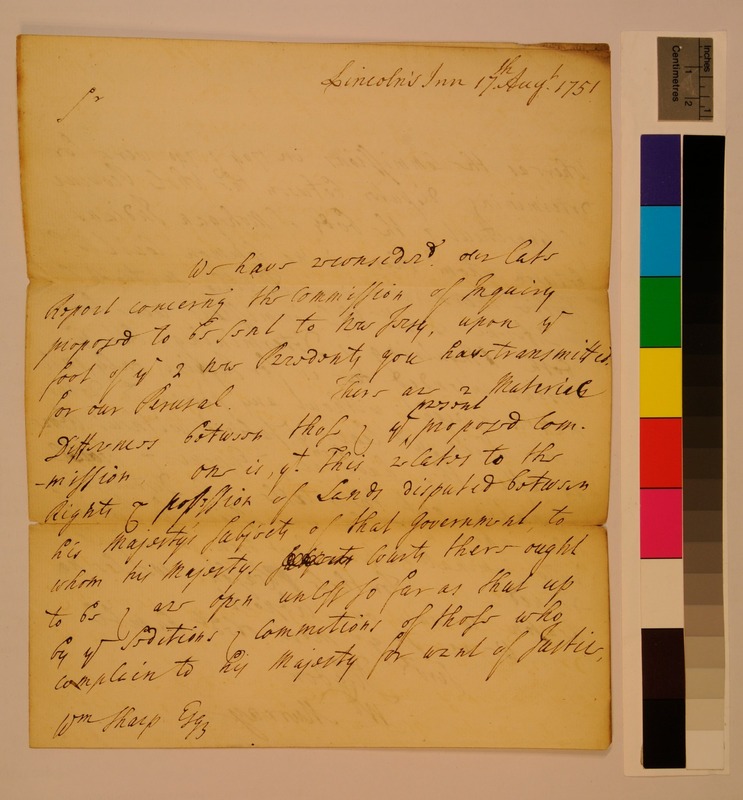 Lincolns Inn 17th Augt. 1751
Sr
We have reconsiderd. our late
Report concerng the Commission of Inquiry
proposed to be sent to New Jersy, upon ye
foot of ye 2 new Precedents you have transmitted
for our Perusal. There are 2 Material
Differences between those & ye present proposed Com-
-mission, one is, yt. This relates to the
Rights & possession of Lands disputed between
his Majestys Subjects of that Government to
whom his Majestys Courts there ought
to be & are open unless so far as shut up
by ye Seditions & commotions of those who
complain to his Majesty for want of Justice,
Wm Sharp Esqr
Inches
Centimetres
1
2
1